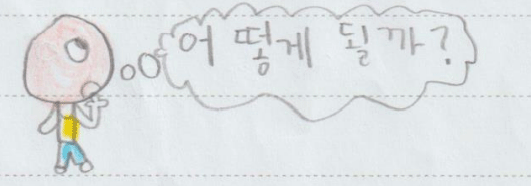 어떻게 될까?